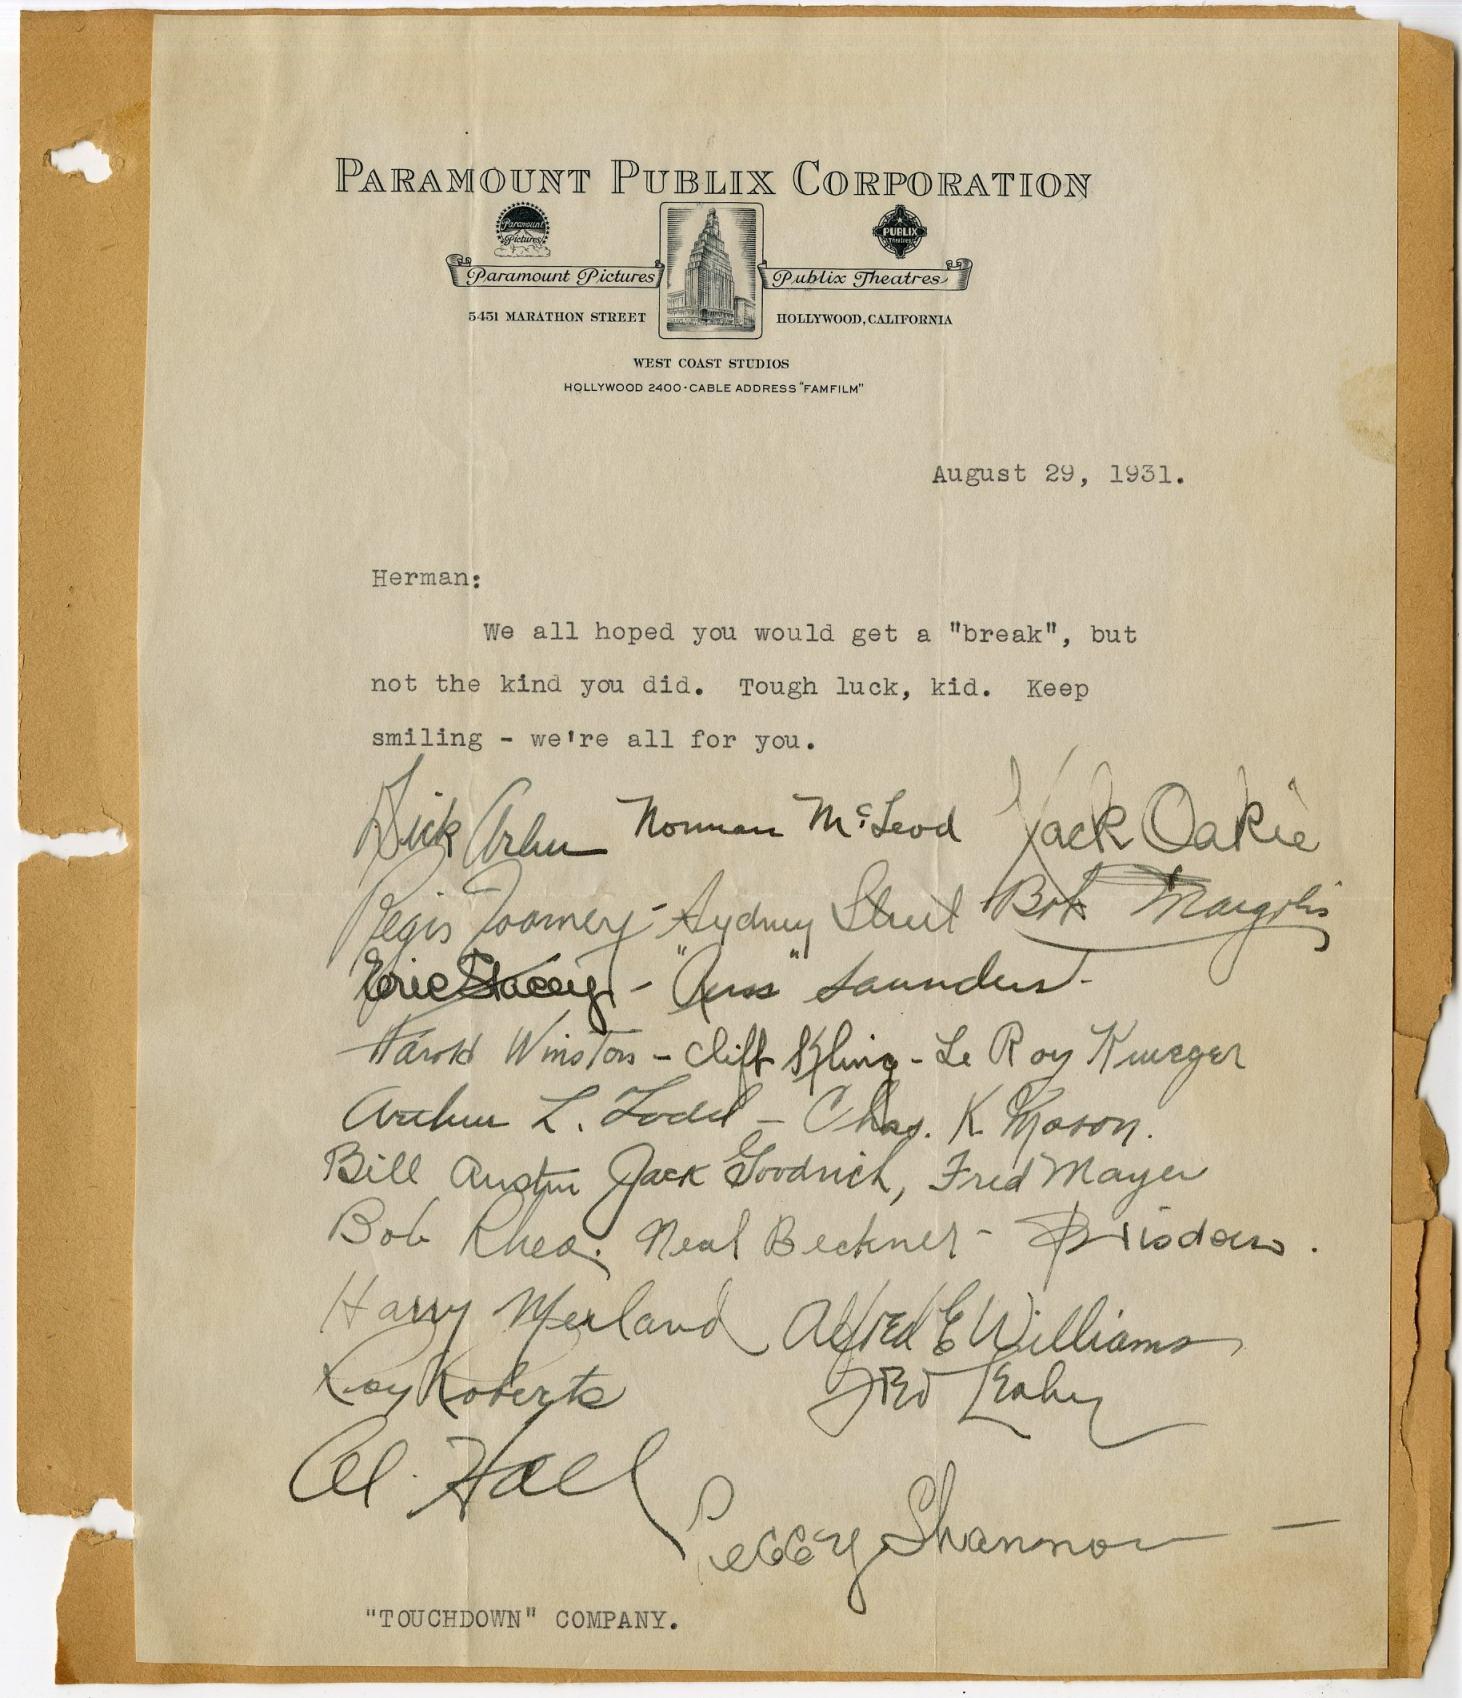 PARAMOUNT PUBLIX CORPORATION
Paramount Pictures
PUBLIX Theatres
Paramount Pictures Publix Theatres
5451 MARATHON STREET HOLLYWOOD, CALIFORNIA
WEST COAST STUDIOS
HOLLYWOOD 2400 · CABLE ADDRESS "FAMFILM"
August 29, 1931.
Herman:
We all hoped you would get a "break", but
not the kind you did. Tough luck, kid. Keep
smiling - we're all for you.
Dick Arlen Norman McLeod Jack Oakie
Regis Toomey - Sydney Bob Margolis
Eric Stacey - "Russ" Saunders -
Harold Winston - Cliff - Le Roy Krueger
Arthur L. Todd - Chas. K. Mason.
Bill Austin Jack Goodrich, Fred Mayer
Bob Rhea. Neal Beckner -
Harry Merland Alfred E Williams
Roy Roberts Fred Leahy
Al. Hall
Peggy Shannon -
"TOUCHDOWN" COMPANY.